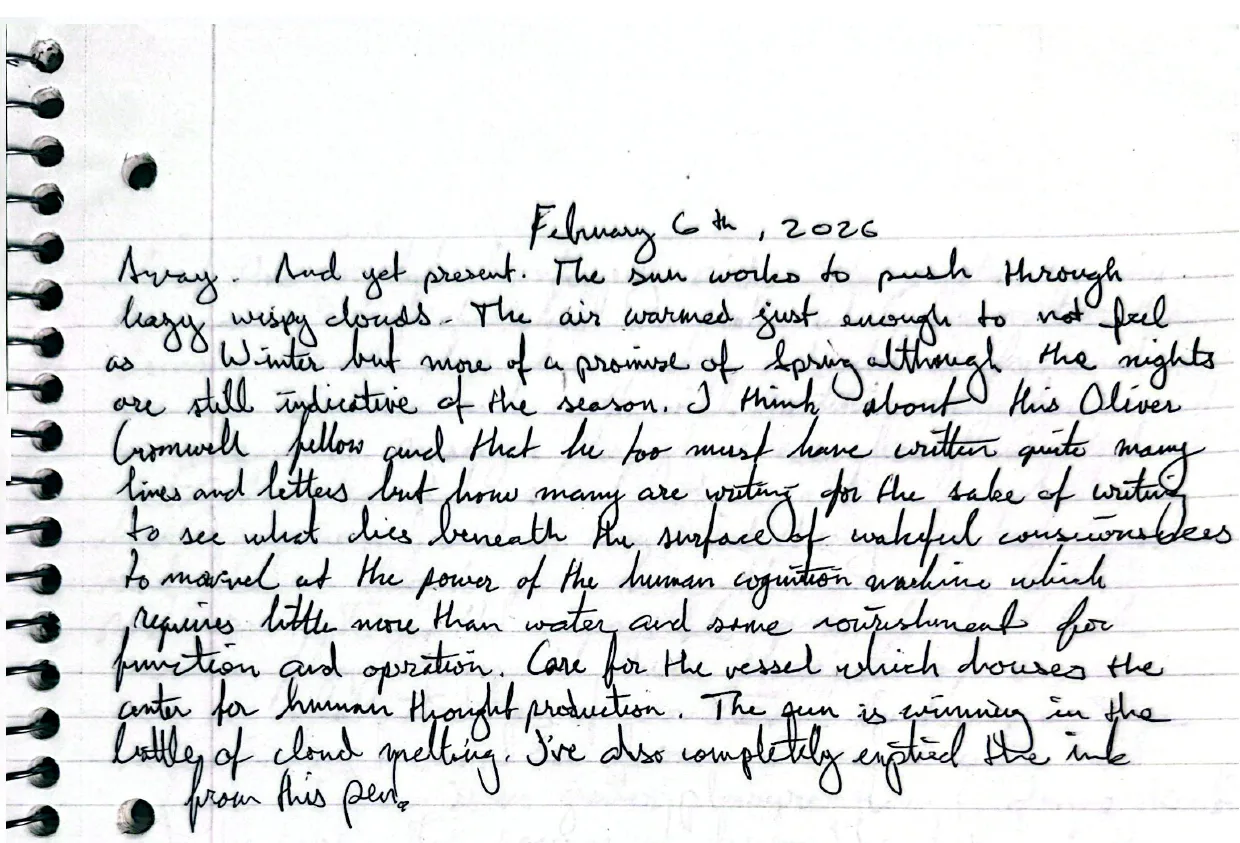 February 6th, 2026
Away. And yet present. The sun works to push through
hazy wispy clouds. The air warmed just enough to not feel
as Winter but more of a promise of Spring although the nights
are still indicative of the season. I think about this Oliver
Cromwell fellow and that he too must have written quite many
lines and letters but how many are writing for the sake of writing
to see what lies beneath the surface of wakeful
to marvel at the power of the human cognition machine which
requires little more than water and some nourishment for
function and operation. Care for the vessel which houses the
center for human thought production. The sun is winning in the
battle of cloud melting. I've also completely emptied the ink
from this pen.